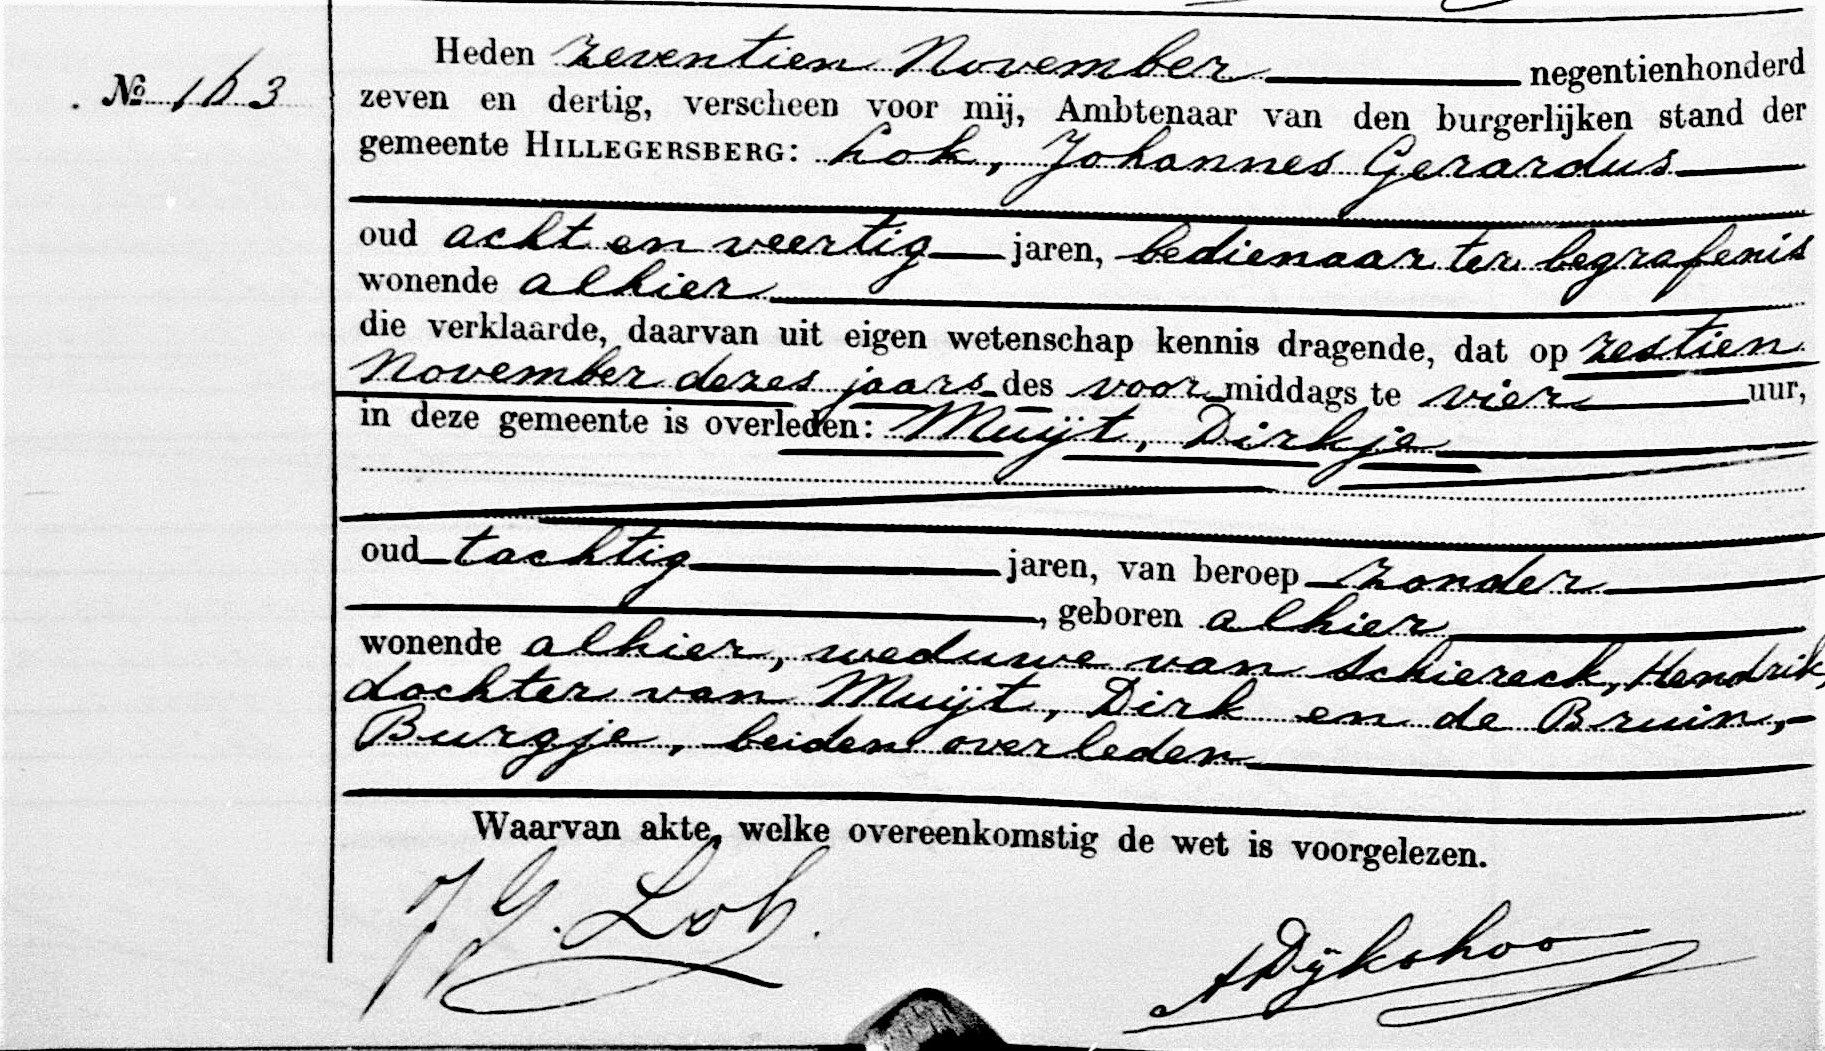 № 163
Heden zeventien November negentienhonderd
zeven en dertig, verscheen voor mij, Ambtenaar van den burgerlijken stand der
gemeente HILLEGERSBERG: Lok, Johannes Gerardus
oud acht en veertig jaren, bedienaar ter begrafenis
wonende alhier
die verklaarde, daarvan uit eigen wetenschap kennis dragende, dat op zestien
November dezes jaars des voormiddags te vier uur,
in deze gemeente is overleden: Muijt, Dirkje
oud tachtig jaren, van beroep zonder
, geboren alhier
wonende alhier, weduwe van Schiereck, Hendrik,
dochter van Muijt, Dirk en de Bruin,
Burgje, beiden overleden
Waarvan akte, welke overeenkomstig de wet is voorgelezen.
J G. Lok.